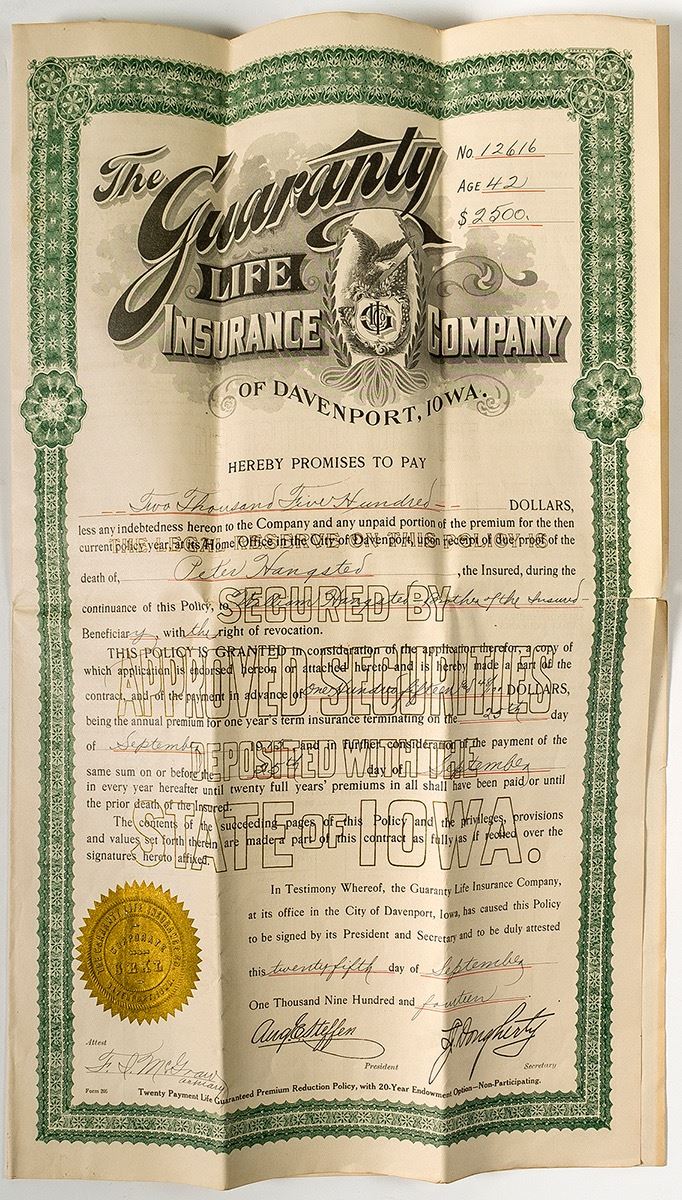 The Guaranty
LIFE
INSURANCE COMPANY
OF DAVENPORT, IOWA.
No. 12616
AGE 42
$2500.
HEREBY PROMISES TO PAY
Two Thousand Five Hundred DOLLARS,
less any indebtedness hereon to the Company and any unpaid portion of the premium for the then
current policy year, at its Home Office in the City of Davenport, upon receipt of due proof of the
death of, Peter Hangsted, the Insured, during the
continuance of this Policy, to Hangsted of the Insured
Beneficiary, with the right of revocation.
THIS POLICY IS GRANTED in consideration of the application therefor, a copy of
which application is endorsed hereon or attached hereto and is hereby made a part of the
contract, and of the payment in advance of One Hundred fifteen DOLLARS,
being the annual premium for one year's term insurance terminating on the 25th day
of September 19 and in further consideration of the payment of the
same sum on or before the 25th day of September
in every year hereafter until twenty full years' premiums in all shall have been paid or until
the prior death of the Insured.
The contents of the succeeding pages of this Policy and the privileges, provisions
and values set forth therein are made a part of this contract as fully as if recited over the
signatures hereto affixed.
SECURED BY
APPROVED SECURITIES
DEPOSITED WITH THE
STATE OF IOWA.
In Testimony Whereof, the Guaranty Life Insurance Company,
at its office in the City of Davenport, Iowa, has caused this Policy
to be signed by its President and Secretary and to be duly attested
this twenty fifth day of September
One Thousand Nine Hundred and fourteen
Aug E Steffen
President
L J Dougherty
Secretary
THE GUARANTY LIFE INSURANCE CO.
CORPORATE
SEAL
DAVENPORT, IOWA
Attest
F. S. McGraw
Form 205
Twenty Payment Life Guaranteed Premium Reduction Policy, with 20-Year Endowment Option—Non-Participating.